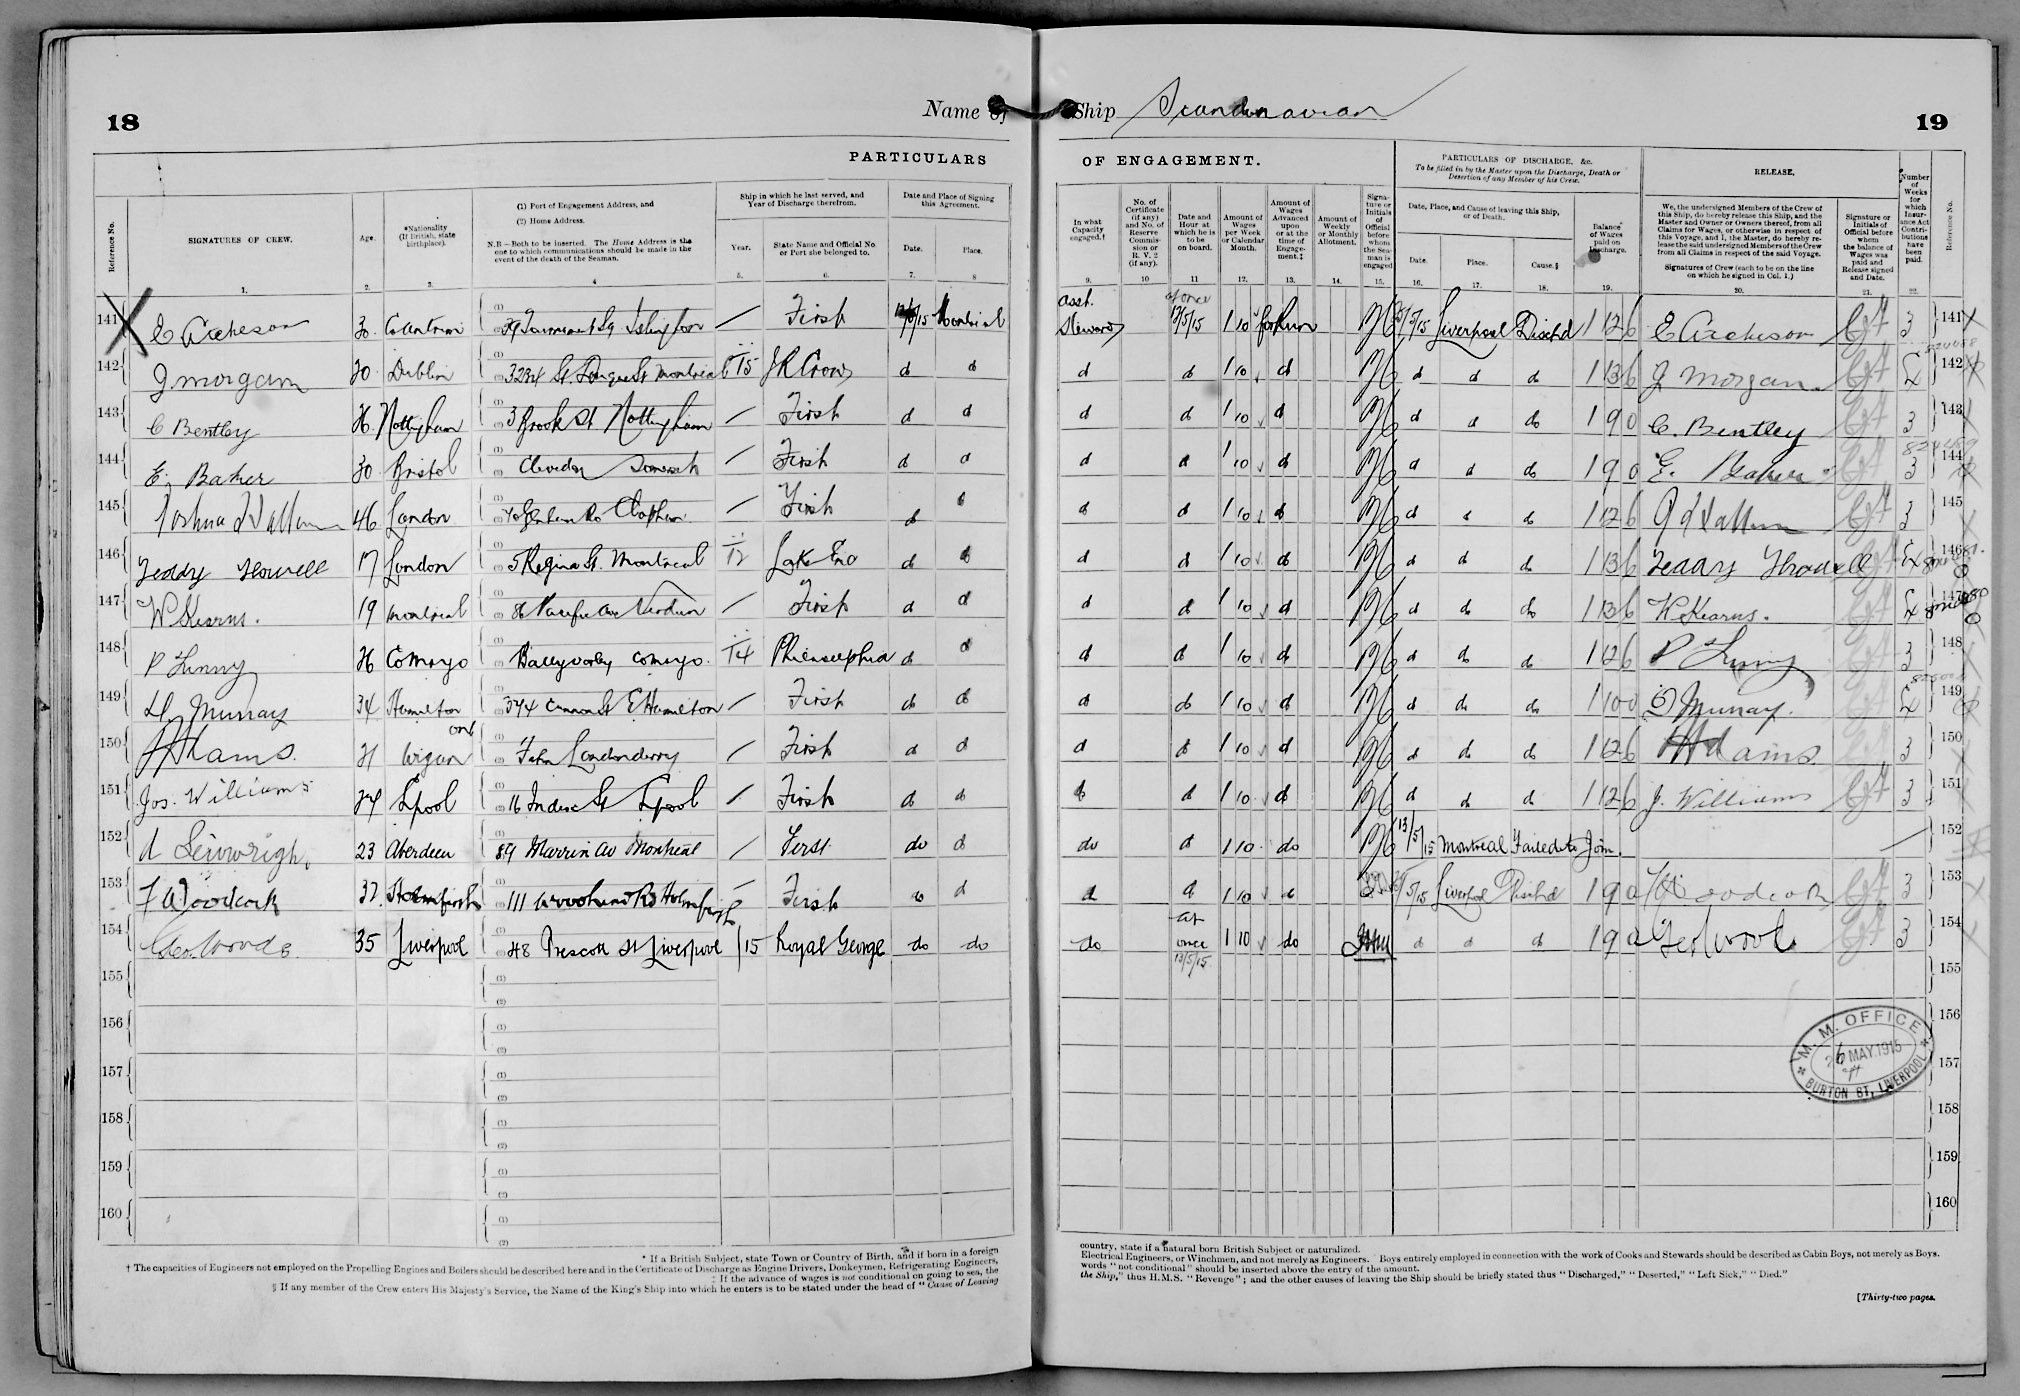 18
Name of
PARTICULARS
Reference No.
SIGNATURES OF CREW.
Age.
*Nationality
(If British, state
birthplace).
(1) Port of Engagement Address, and
(2) Home Address.
N.B.—Both to be inserted. The Home Address is the
one to which communications should be made in the
event of the death of the Seaman.
Ship in which he last served, and
Year of Discharge therefrom.
Year.
State Name and Official No.
or Port she belonged to.
Date and Place of Signing
this Agreement.
Date.
Place.
1. 2. 3. 4 5. 6. 7. 8
141 E Acheson 30 Co Antrim First Montreal
142 J Morgan 20 Dublin Montreal 15 d d
143 C Bentley 26 Nottingham 3 Brook St Nottingham First d d
144 E. Baker 30 Bristol Clevedon Somerset First d d
145 46 London First d d
146 Teddy Howell 17 London 5 Regina St. Montreal 12 Lake Erie d d
147 W Kearns. 19 Montreal 86 Pacific Ave Verdun First d d
148 P Lunny 26 Co Mayo Co Mayo. 14 d d
149 D Murray 34 Hamilton Ont 374 Cannon St E Hamilton First d d
150 Adams. 21 Wigan Londonderry First d d
151 Jos. Williams 24 L'pool 16 Index St L'pool First d d
152 23 Aberdeen 89 Montreal First do d
153 F Woodcock 37. Holmfirth 111 Holmfirth First do d
154 Geo. Woods. 35 Liverpool 48 Prescott St Liverpool 15 Royal George do do
155
156
157
158
159
160
* If a British Subject, state Town or Country of Birth, and if born in a foreign
† The capacities of Engineers not employed on the Propelling Engines and Boilers should be described here and in the Certificate of Discharge as Engine Drivers, Donkeymen, Refrigerating Engineers,
‡ If the advance of wages is not conditional on going to sea, the
§ If any member of the Crew enters His Majesty's Service, the Name of the King's Ship into which he enters is to be stated under the head of "Cause of Leaving
Ship Scandinavian
19
OF ENGAGEMENT.
PARTICULARS OF DISCHARGE, &c.
To be filled in by the Master upon the Discharge, Death or
Desertion of any Member of his Crew.
RELEASE.
In what
Capacity
engaged.†
No. of
Certificate
(if any)
and No. of
Reserve
Commis-
sion or
R. V. 2
(if any).
Date and
Hour at
which he is
to be
on board.
Amount of
Wages
per Week
or Calendar
Month.
Amount of
Wages
Advanced
upon
or at the
time of
Engage-
ment.‡
Amount of
Weekly
or Monthly
Allotment.
Signa-
ture or
Initials
of
Official
before
whom
the Sea-
man is
engaged
Date, Place, and Cause of leaving this Ship,
or of Death.
Date.
Place.
Cause.§
Balance
of Wages
paid on
Discharge.
We, the undersigned Members of the Crew of
this Ship, do hereby release this Ship, and the
Master and Owner or Owners thereof, from all
Claims for Wages, or otherwise in respect of
this Voyage, and I, the Master, do hereby re-
lease the said undersigned Members of the Crew
from all Claims in respect of the said Voyage.
Signatures of Crew (each to be on the line
on which he signed in Col. 1.)
Signature or
Initials of
Official before
whom
the balance of
Wages was
paid and
Release signed
and Date.
Number
of
Weeks
for
which
Insur-
ance Act
Contri-
butions
have
been
paid.
Reference No.
9. 10 11 12. 13. 14. 15. 16. 17. 18. 19. 20. 21. 22.
Asst. Steward at once 13/5/15 1 10 for Run Liverpool Disch'd 1 12 6 E Acheson 3 141
d d 1 10 d d d do 1 13 6 J Morgan 4 142
d d 1 10 d d d do 1 9 0 C. Bentley 3 143
d d 1 10 d d d do 1 9 0 E. Baker 3 144
d d 1 10 d d d do 1 12 6 3 145
d d 1 10 d d d do 1 13 6 Teddy Howell 4 146
d d 1 10 d d do do 1 13 6 W Kearns. 4 147
d d 1 10 d d do do 1 12 6 P Lunny 3 148
d d 1 10 d d do do 1 10 0 D Murray. 4 149
d d 1 10 d d do do 1 12 6 Adams. 3 150
d d 1 10 d d do d 1 12 6 J. Williams 3 151
do d 1 10 do 13/5/15 Montreal Failed to Join. 152
d d 1 10 d Liverpool Disch'd 1 9 0 F Woodcock 3 153
do at once 13/5/15 1 10 do d d do 1 9 0 Geo Woods 3 154
155
156
157
158
159
160
M. M. OFFICE
26 MAY. 1915
BURTON ST, LIVERPOOL
country, state if a natural born British Subject or naturalized.
Electrical Engineers, or Winchmen, and not merely as Engineers. Boys entirely employed in connection with the work of Cooks and Stewards should be described as Cabin Boys, not merely as Boys.
words "not conditional" should be inserted above the entry of the amount.
the Ship," thus H.M.S. "Revenge"; and the other causes of leaving the Ship should be briefly stated thus "Discharged," "Deserted," "Left Sick," "Died."
[Thirty-two pages.